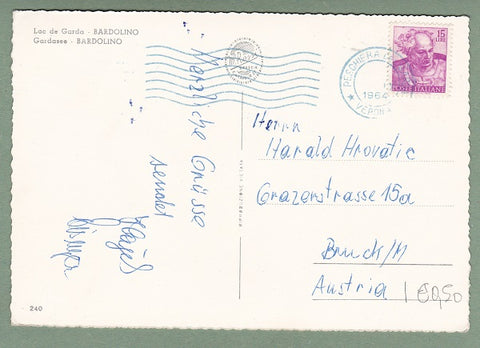 Lac de Garda - BARDOLINO
Gardasee - BARDOLINO
Herzliche Grüsse
sendet
240
PESCHIERA
1964
VERONA
15
LIRE
POSTE ITALIANE
Herrn
Harald Hrovatic
Grazerstrasse 15a
Bruck/M
Austria
€0,50